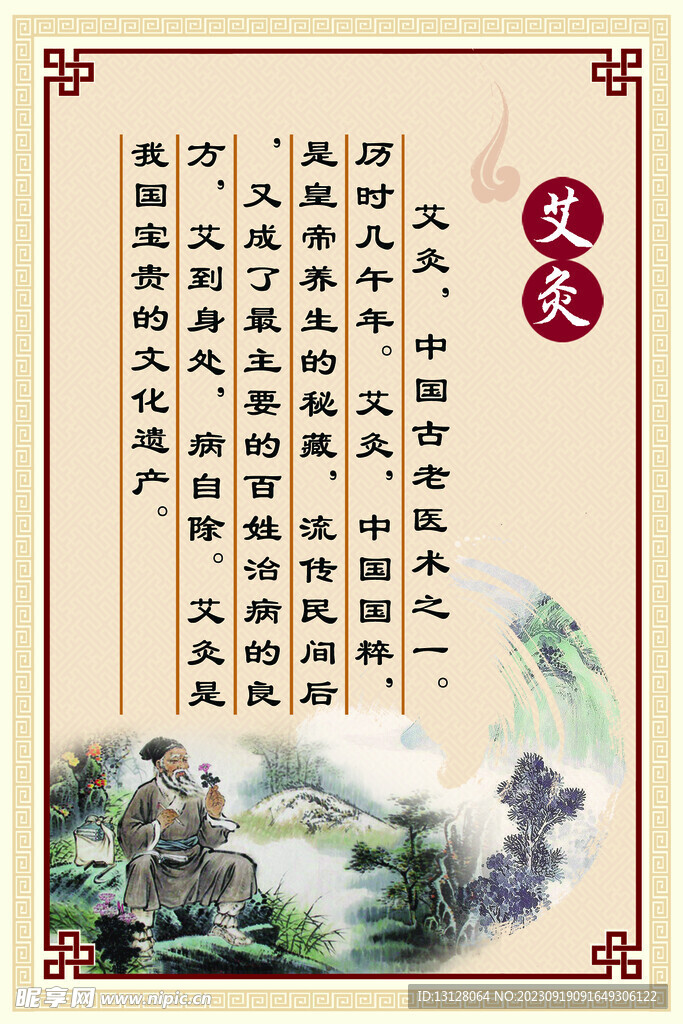 艾灸
艾灸，中国古老医术之一。
历时几午年。艾灸，中国国粹，
是皇帝养生的秘藏，流传民间后
，又成了最主要的百姓治病的良
方，艾到身处，病自除。艾灸是
我国宝贵的文化遗产。
昵享网 www.nipic.cn
ID:13128064 NO:20230919091649306122